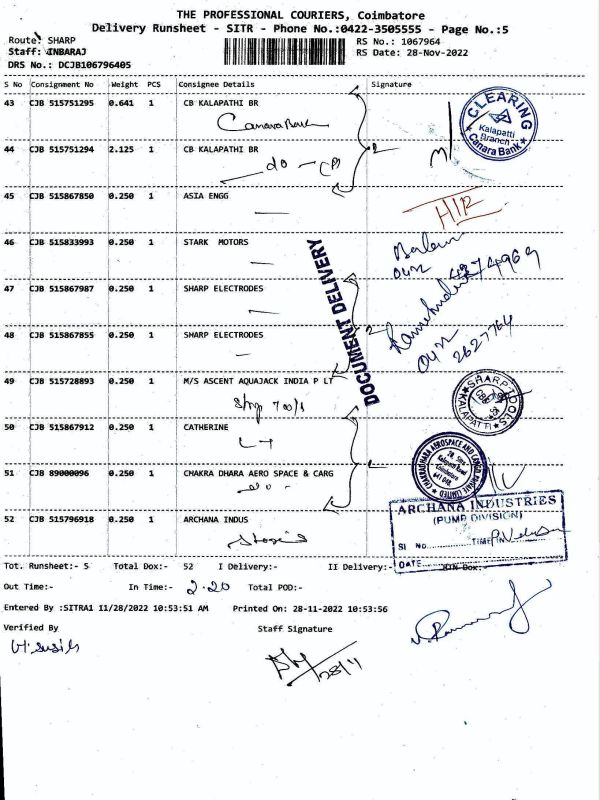 THE PROFESSIONAL COURIERS, Coimbatore
Delivery Runsheet - SITR - Phone No.:0422-3505555 - Page No.:5
Route: SHARP
RS No.: 1067964
Staff: INBARAJ
RS Date: 28-Nov-2022
DRS No.: DCJB106796405
S No Consignment No Weight PCS Consignee Details Signature
43 CJB 515751295 0.641 1 CB KALAPATHI BR
Canara Bank
CLEARING
Kalapatti
Branch
Canara Bank
44 CJB 515751294 2.125 1 CB KALAPATHI BR
do
45 CJB 515867850 0.250 1 ASIA ENGG
46 CJB 515833993 0.250 1 STARK MOTORS
DOCUMENT DELIVERY
47 CJB 515867987 0.250 1 SHARP ELECTRODES
48 CJB 515867855 0.250 1 SHARP ELECTRODES
2627764
49 CJB 515728893 0.250 1 M/S ASCENT AQUAJACK INDIA P LT
SHARP TOOLS
KALAPATTI
50 CJB 515867912 0.250 1 CATHERINE
51 CJB 89000096 0.250 1 CHAKRA DHARA AERO SPACE & CARG
CHAKRADHARA AEROSPACE AND CARGO PRIVATE LIMITED
Kalapatti Road
Coimbatore
641 048
52 CJB 515796918 0.250 1 ARCHANA INDUS
ARCHANA INDUSTRIES
(PUMP DIVISION)
SI NO. TIME IN
DATE
Tot. Runsheet:- 5 Total Dox:- 52 I Delivery:- II Delivery:-
Out Time:- In Time:- 2.20 Total POD:-
Entered By :SITRA1 11/28/2022 10:53:51 AM Printed On: 28-11-2022 10:53:56
Verified By Staff Signature
28/11